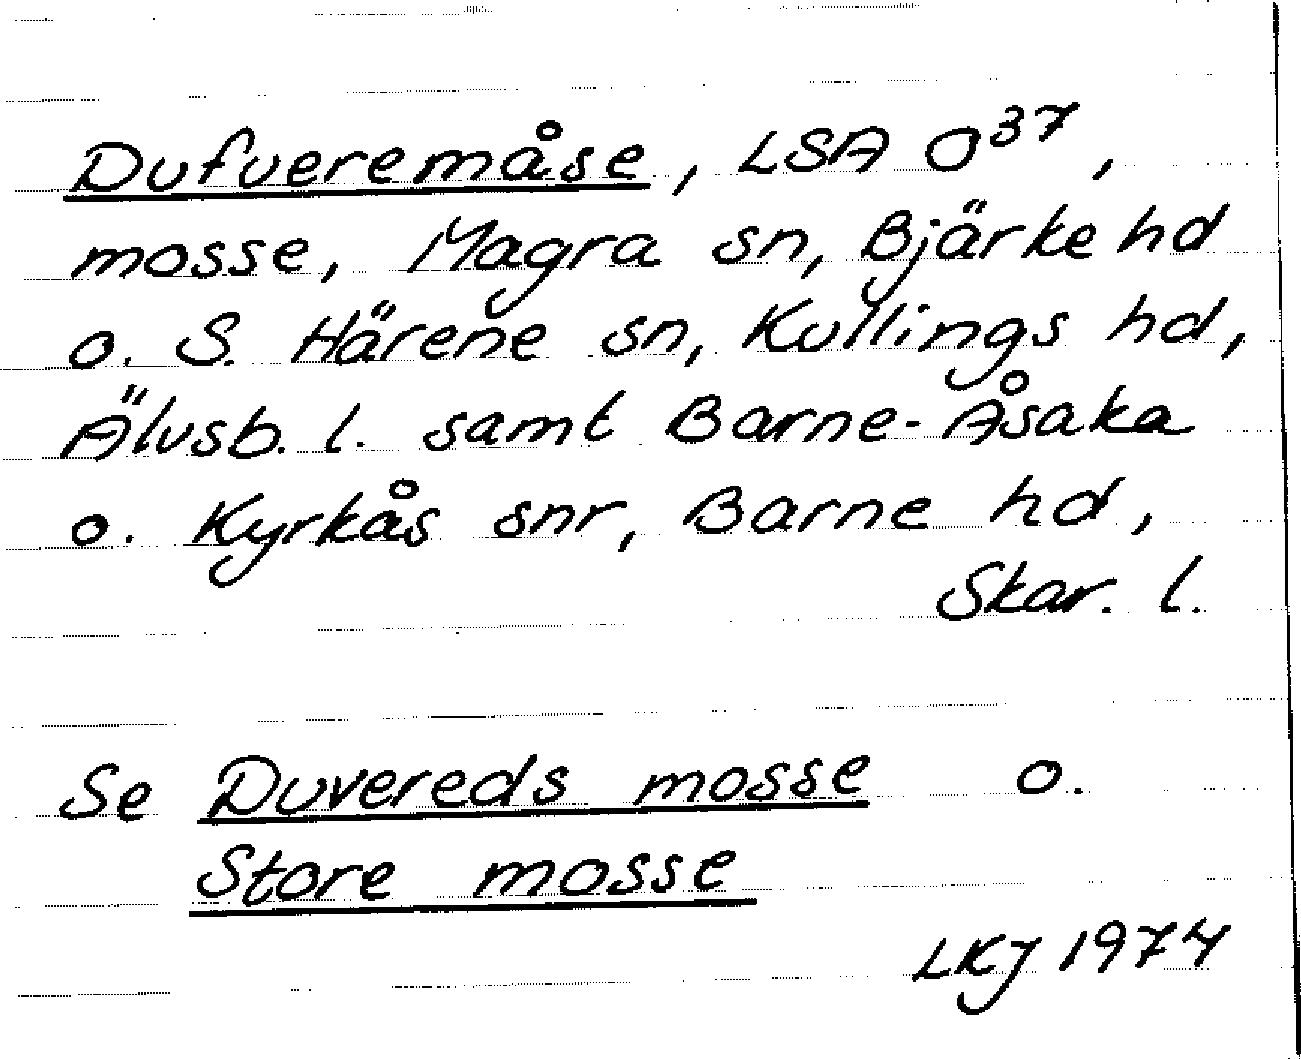 Dufveremåse, LSA O³⁷,
mosse, Magra sn, Bjärke hd
o. S. Härene sn, Kullings hd,
Älvsb. l. samt Barne-Åsaka
o. Kyrkås snr, Barne hd,
Skar. l.
Se Duvereds mosse o.
Store mosse
LKJ 1974